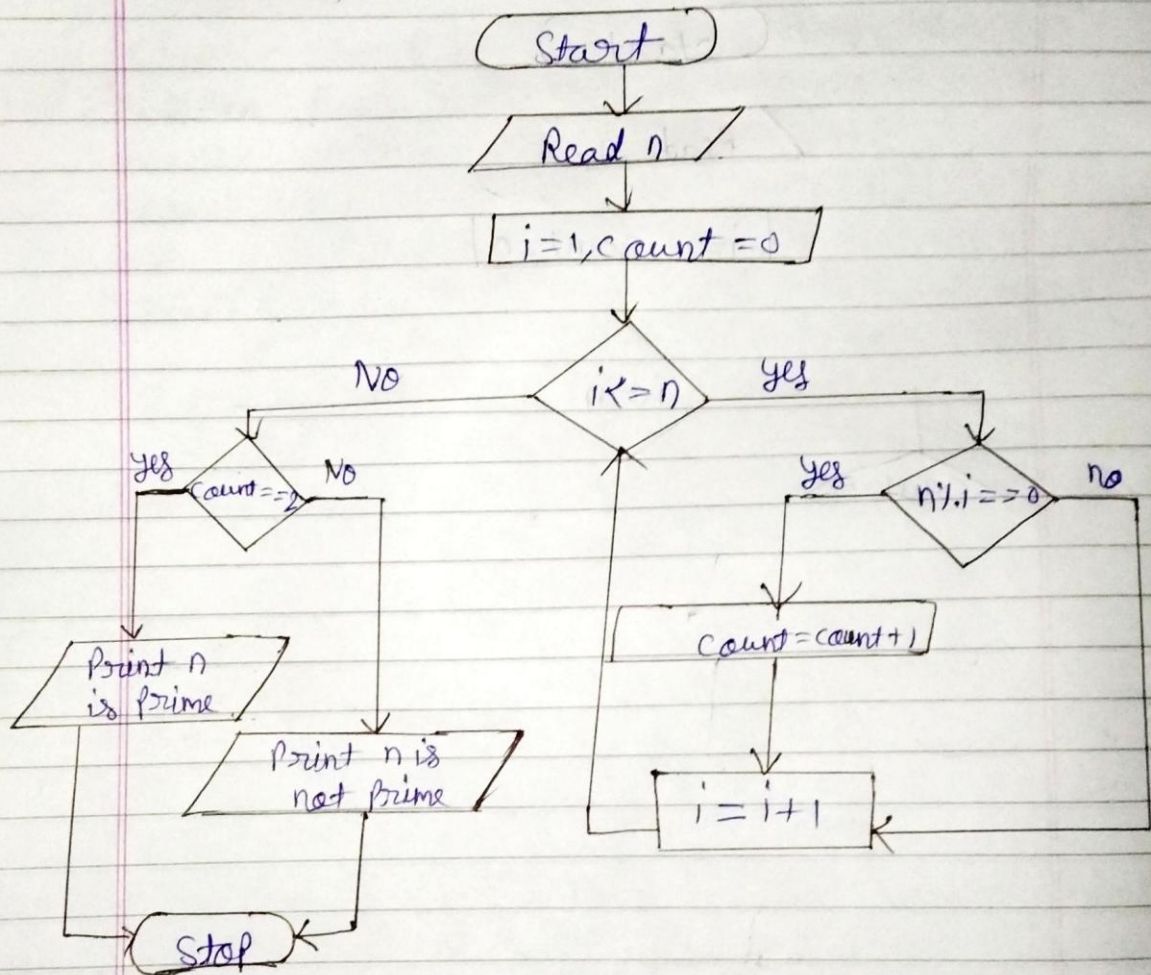 Start
Read n
i=1, count =0
i<=n
No
yes
count==2
yes
No
n%i==0
yes
no
count=count+1
i=i+1
Print n
is prime
Print n is
not prime
Stop